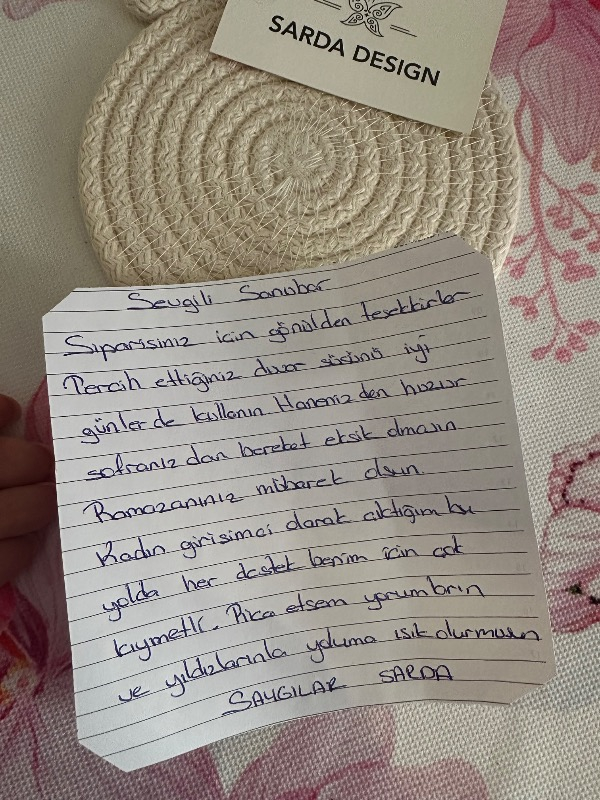 SARDA DESIGN
Sevgili Sanubar
Siparisiniz icin gönülden tesekkürler
Tercih ettiğiniz duvar süsünü iyi
günlerde kullanın Hanenizden huzur
sofranızdan bereket eksik olmasın
Ramazanınız mübarek olsun.
Kadın girisimci olarak cıktığım bu
yolda her destek benim icin cok
kıymetli. Rica etsem yorumların
ve yıldızlarınla yoluma isik olurmusun
SAYGILAR SARDA